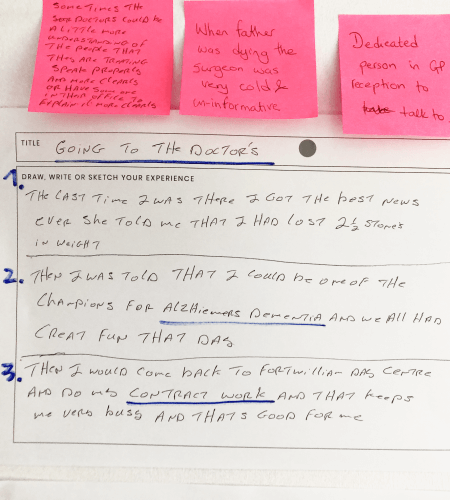 SOMETIMES THE
SEEP DOCTORS COULD BE
A LITTLE MORE
UNDERSTANDING OF
THE PEOPLE THAT
THEY ARE TREATING
SPEAK PROPERLY
AND MORE CLEARLY
OR HAVE SOME ONE
IN THEIR OFFICE TO
EXPLAIN IT MORE CLEARLY
When father
was dying the
surgeon was
very cold &
un-informative.
Dedicated
person in GP
reception to
talk to
TITLE GOING TO THE DOCTOR'S
DRAW, WRITE OR SKETCH YOUR EXPERIENCE
1. THE LAST TIME I WAS THERE I GOT THE BEST NEWS
EVER SHE TOLD ME THAT I HAD LOST 2½ STONES
IN WEIGHT
2. THEN I WAS TOLD THAT I COULD BE ONE OF THE
CHAMPIONS FOR ALZHIEMERS DEMENTIA AND WE ALL HAD
GREAT FUN THAT DAY
3. THEN I WOULD COME BACK TO FORTWILLIAM DAY CENTRE
AND DO MY CONTRACT WORK AND THAT KEEPS
ME VERY BUSY AND THATS GOOD FOR ME